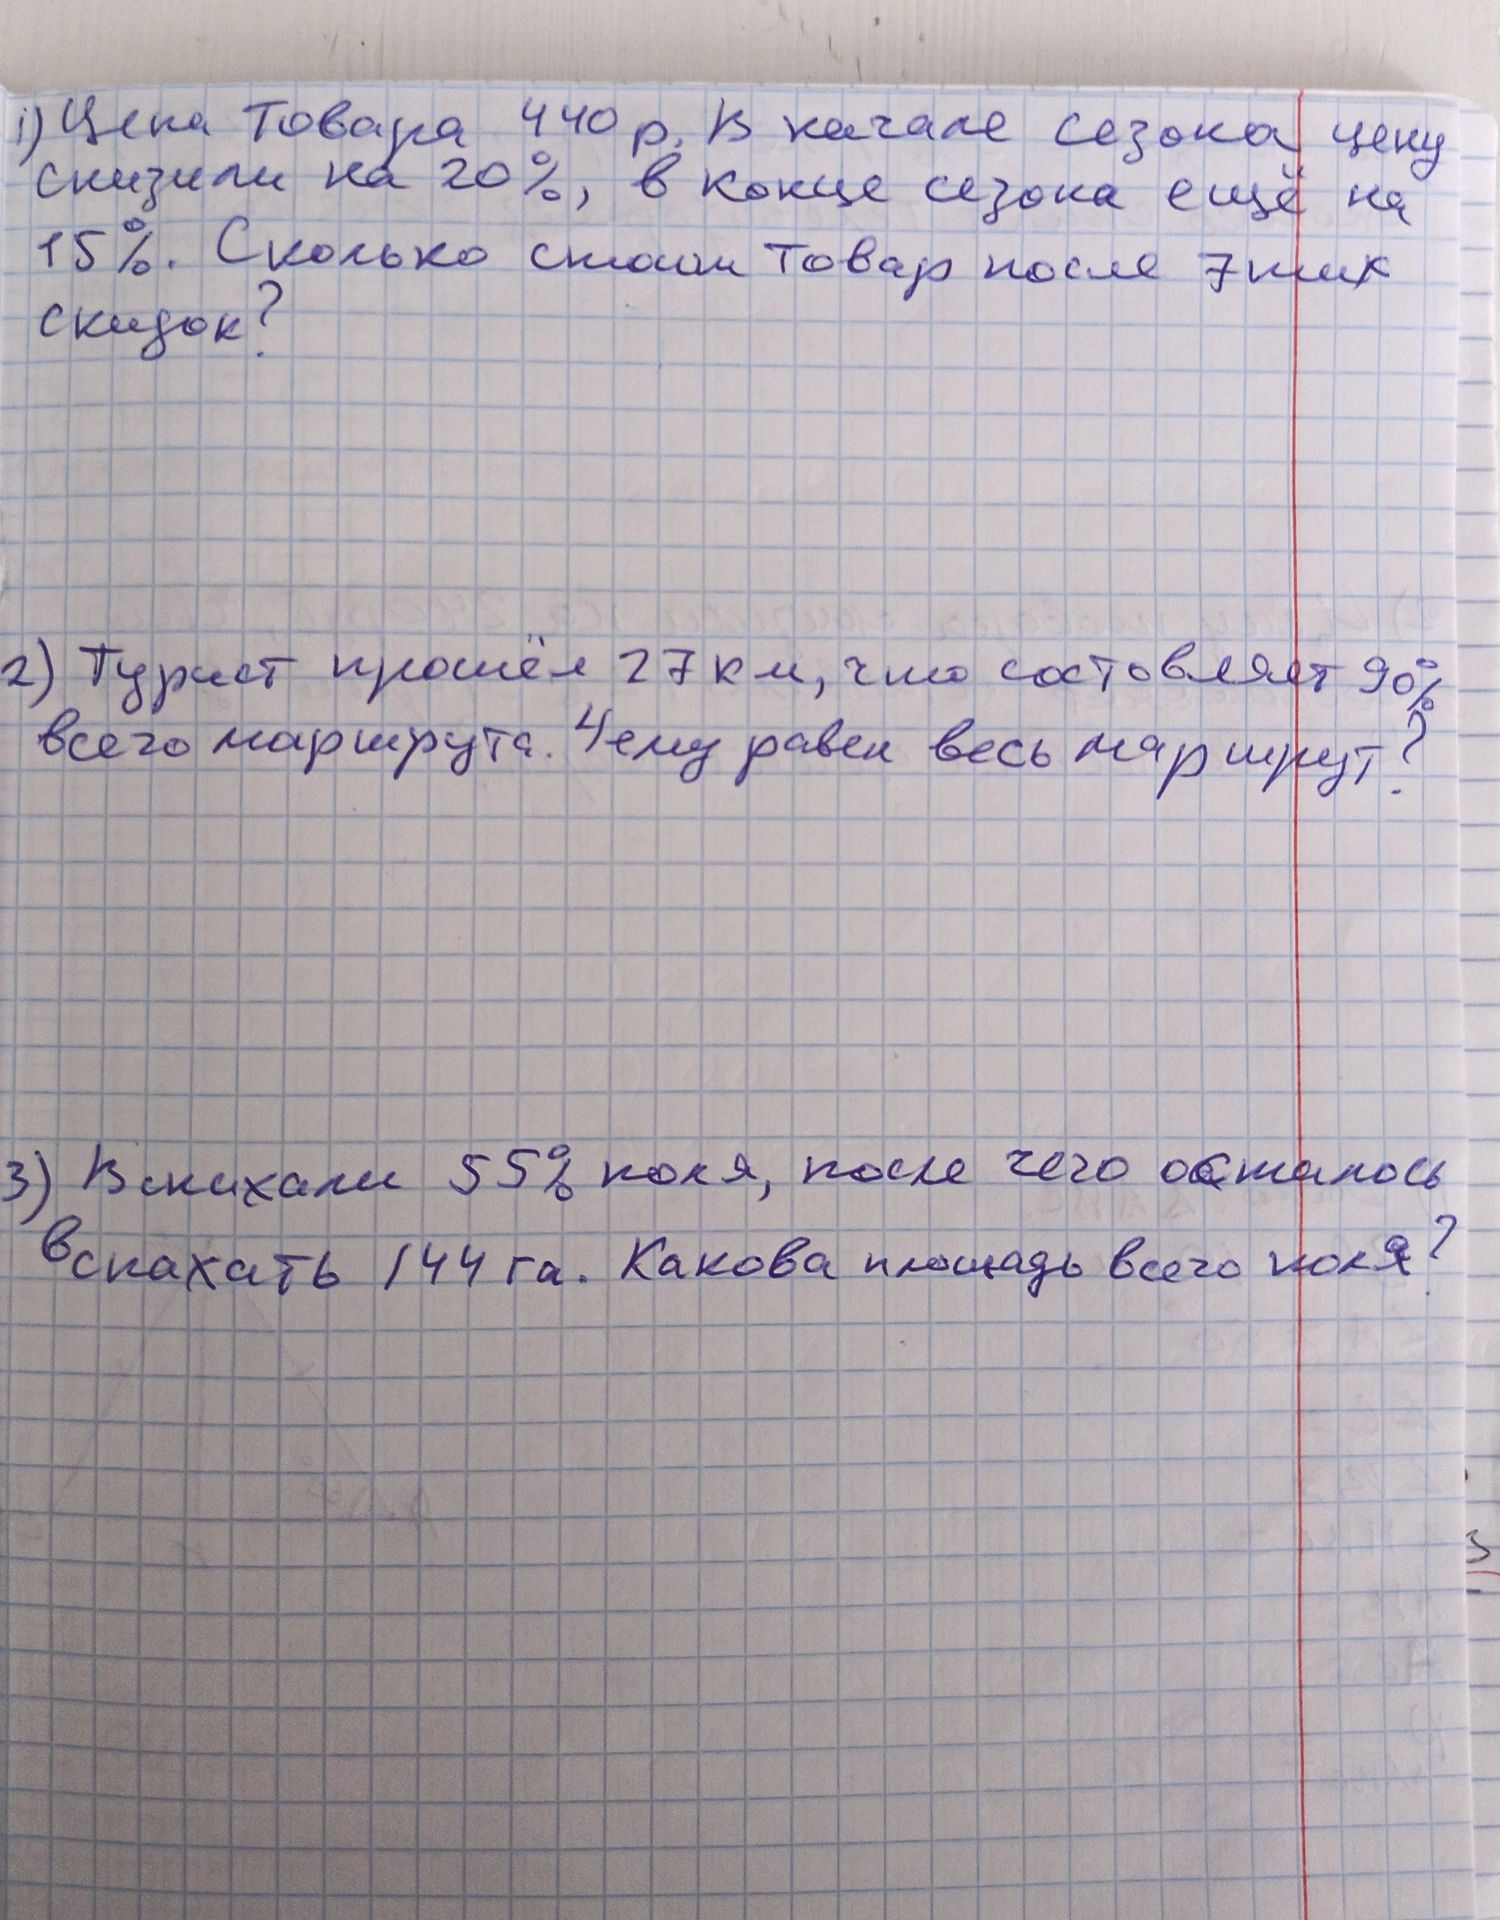 1) Цена товара 440 р. В начале сезона цену
снизили на 20%, в конце сезона ещё на
15%. Сколько стоит товар после этих
скидок?
2) Турист прошёл 27 км, что состовляет 90%
всего маршрута. Чему равен весь маршрут?
3) Вспахали 55% поля, после чего осталось
вспахать 144 га. Какова площадь всего поля?